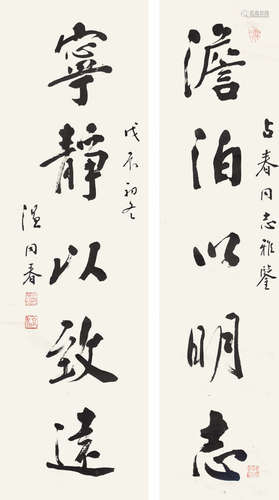 占春同志雅鉴
澹泊以明志
戊辰初冬
寧靜以致遠
温同春